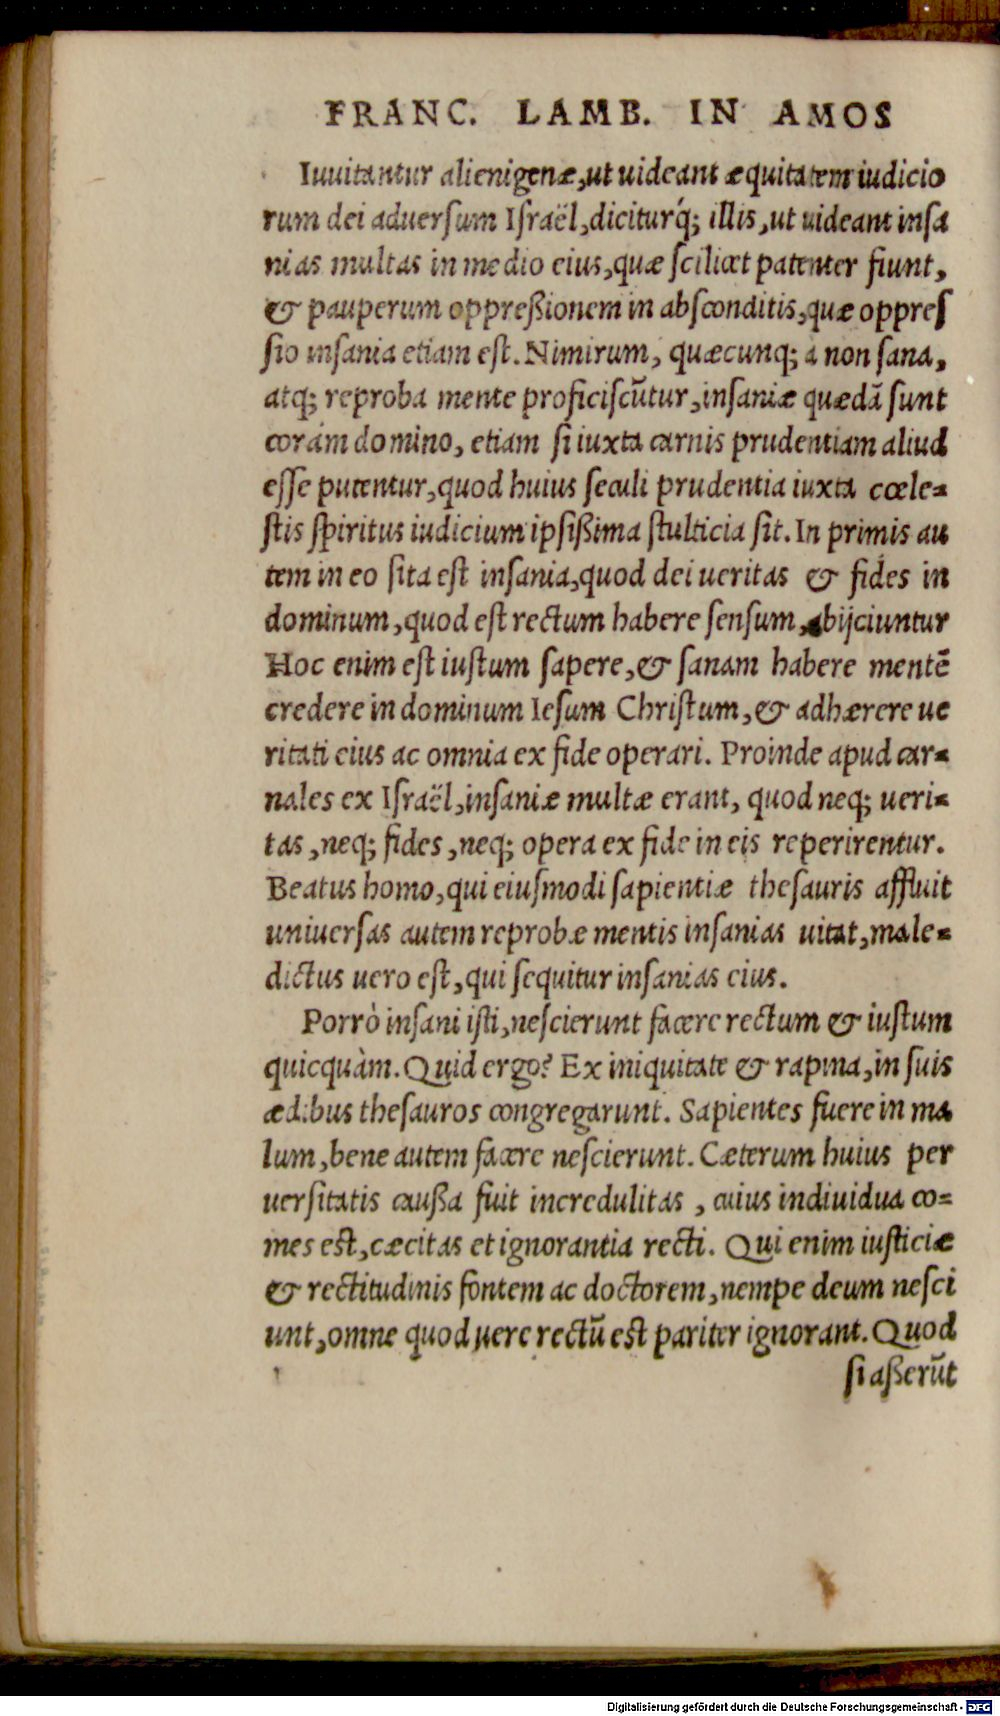 FRANC. LAMB. IN AMOS
Iuuitantur alienigenæ,ut uideant æquitatem iudicio
rum dei aduersum Israël,diciturq́; illis,ut uideant insa
nias multas in medio eius,quæ scilicet patenter fiunt,
& pauperum oppreßionem in absconditis,quæ oppres
sio insania etiam est. Nimirum, quæcunq; à non sana,
atq; reproba mente proficiscũtur,insaniæ quædã sunt
coràm domino, etiam si iuxta carnis prudentiam aliud
esse putentur,quod huius seculi prudentia iuxta cœle=
stis spiritus iudicium ipsißima stulticia sit. In primis au
tem in eo sita est insania,quod dei ueritas & fides in
dominum,quod est rectum habere sensum, abijciuntur
Hoc enim est iustum sapere,& sanam habere mentẽ
credere in dominum Iesum Christum,& adhærere ue
ritati eius ac omnia ex fide operari. Proinde apud car=
nales ex Israël,insaniæ multæ erant, quod neq; ueri=
tas ,neq; fides ,neq; opera ex fide in eis reperirentur.
Beatus homo,qui eiusmodi sapientiæ thesauris affluit
uniuersas autem reprobæ mentis insanias uitat,male=
dictus uero est,qui sequitur insanias eius.
Porrò insani isti,nescierunt facere rectum & iustum
quicquàm. Quid ergo? Ex iniquitate & rapina,in suis
ædibus thesauros congregarunt. Sapientes fuere in ma
lum,bene autem facere nescierunt. Cæterum huius per
uersitatis caußa fuit incredulitas , cuius indiuidua co=
mes est,cæcitas et ignorantia recti. Qui enim iusticiæ
& rectitudinis fontem ac doctorem,nempe deum nesci
unt,omne quod uere rectũ est pariter ignorant. Quod
si aßerũt
Digitalisierung gefördert durch die Deutsche Forschungsgemeinschaft - DFG